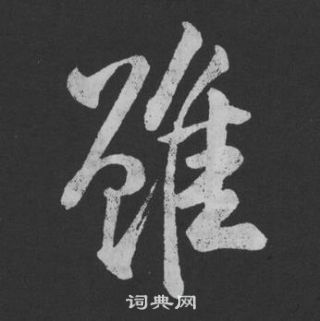 雖
词典网